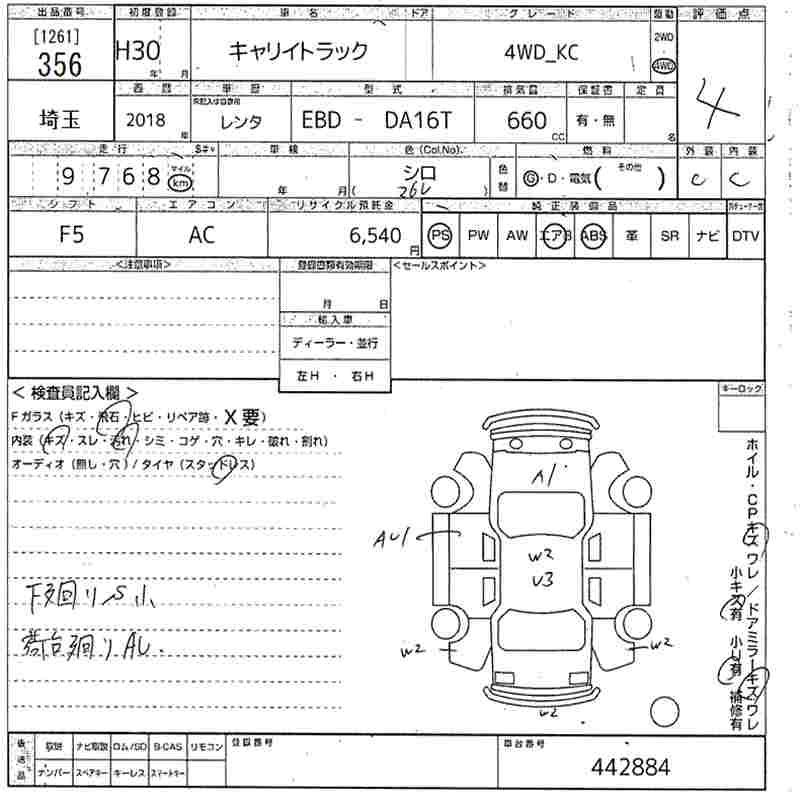 出品番号 初度登録 車名 ドア グレード 駆動 評価点
[1261] 356 H30 年 月 キャリイトラック 4WD_KC 2WD 4WD 4
西暦 車歴 型式 排気量 保証書 定員
埼玉 2018 年 未記入は自家用 レンタ EBD - DA16T 660 CC 有・無 名
走行 Sキャ 車検 色(Col.No). 燃料 外装 内装
9768 マイル km 年 月 シロ ( 26U ) 色替 G・D・電気( その他 ) C C
シフト エアコン リサイクル預託金 純正装備品
F5 AC 6,540 円 PS PW AW エアB ABS 革 SR ナビ DTV
<注意事項> 登録書類有効期限 <セールスポイント>
月 日
輸入車
ディーラー・並行
左H ・ 右H
< 検査員記入欄 > キーロック
Fガラス (キズ・飛石・ヒビ・リペア跡・X要)
内装 (キズ・スレ・汚れ・シミ・コゲ・穴・キレ・破れ・割れ)
オーディオ (無し・穴) / タイヤ (スタッドレス)
A1
AU1
W2
U3
下廻りS小
荷台廻りAU.
W2 W2
W2
ホイル・CPキズワレ/ドアミラーキズワレ
小キズ有 小U有 補修有
後送品 取説 ナビ取説 ロム/SD B-CAS リモコン 登録番号 車台番号
ナンバー スペアキー キーレス スマートキー 442884